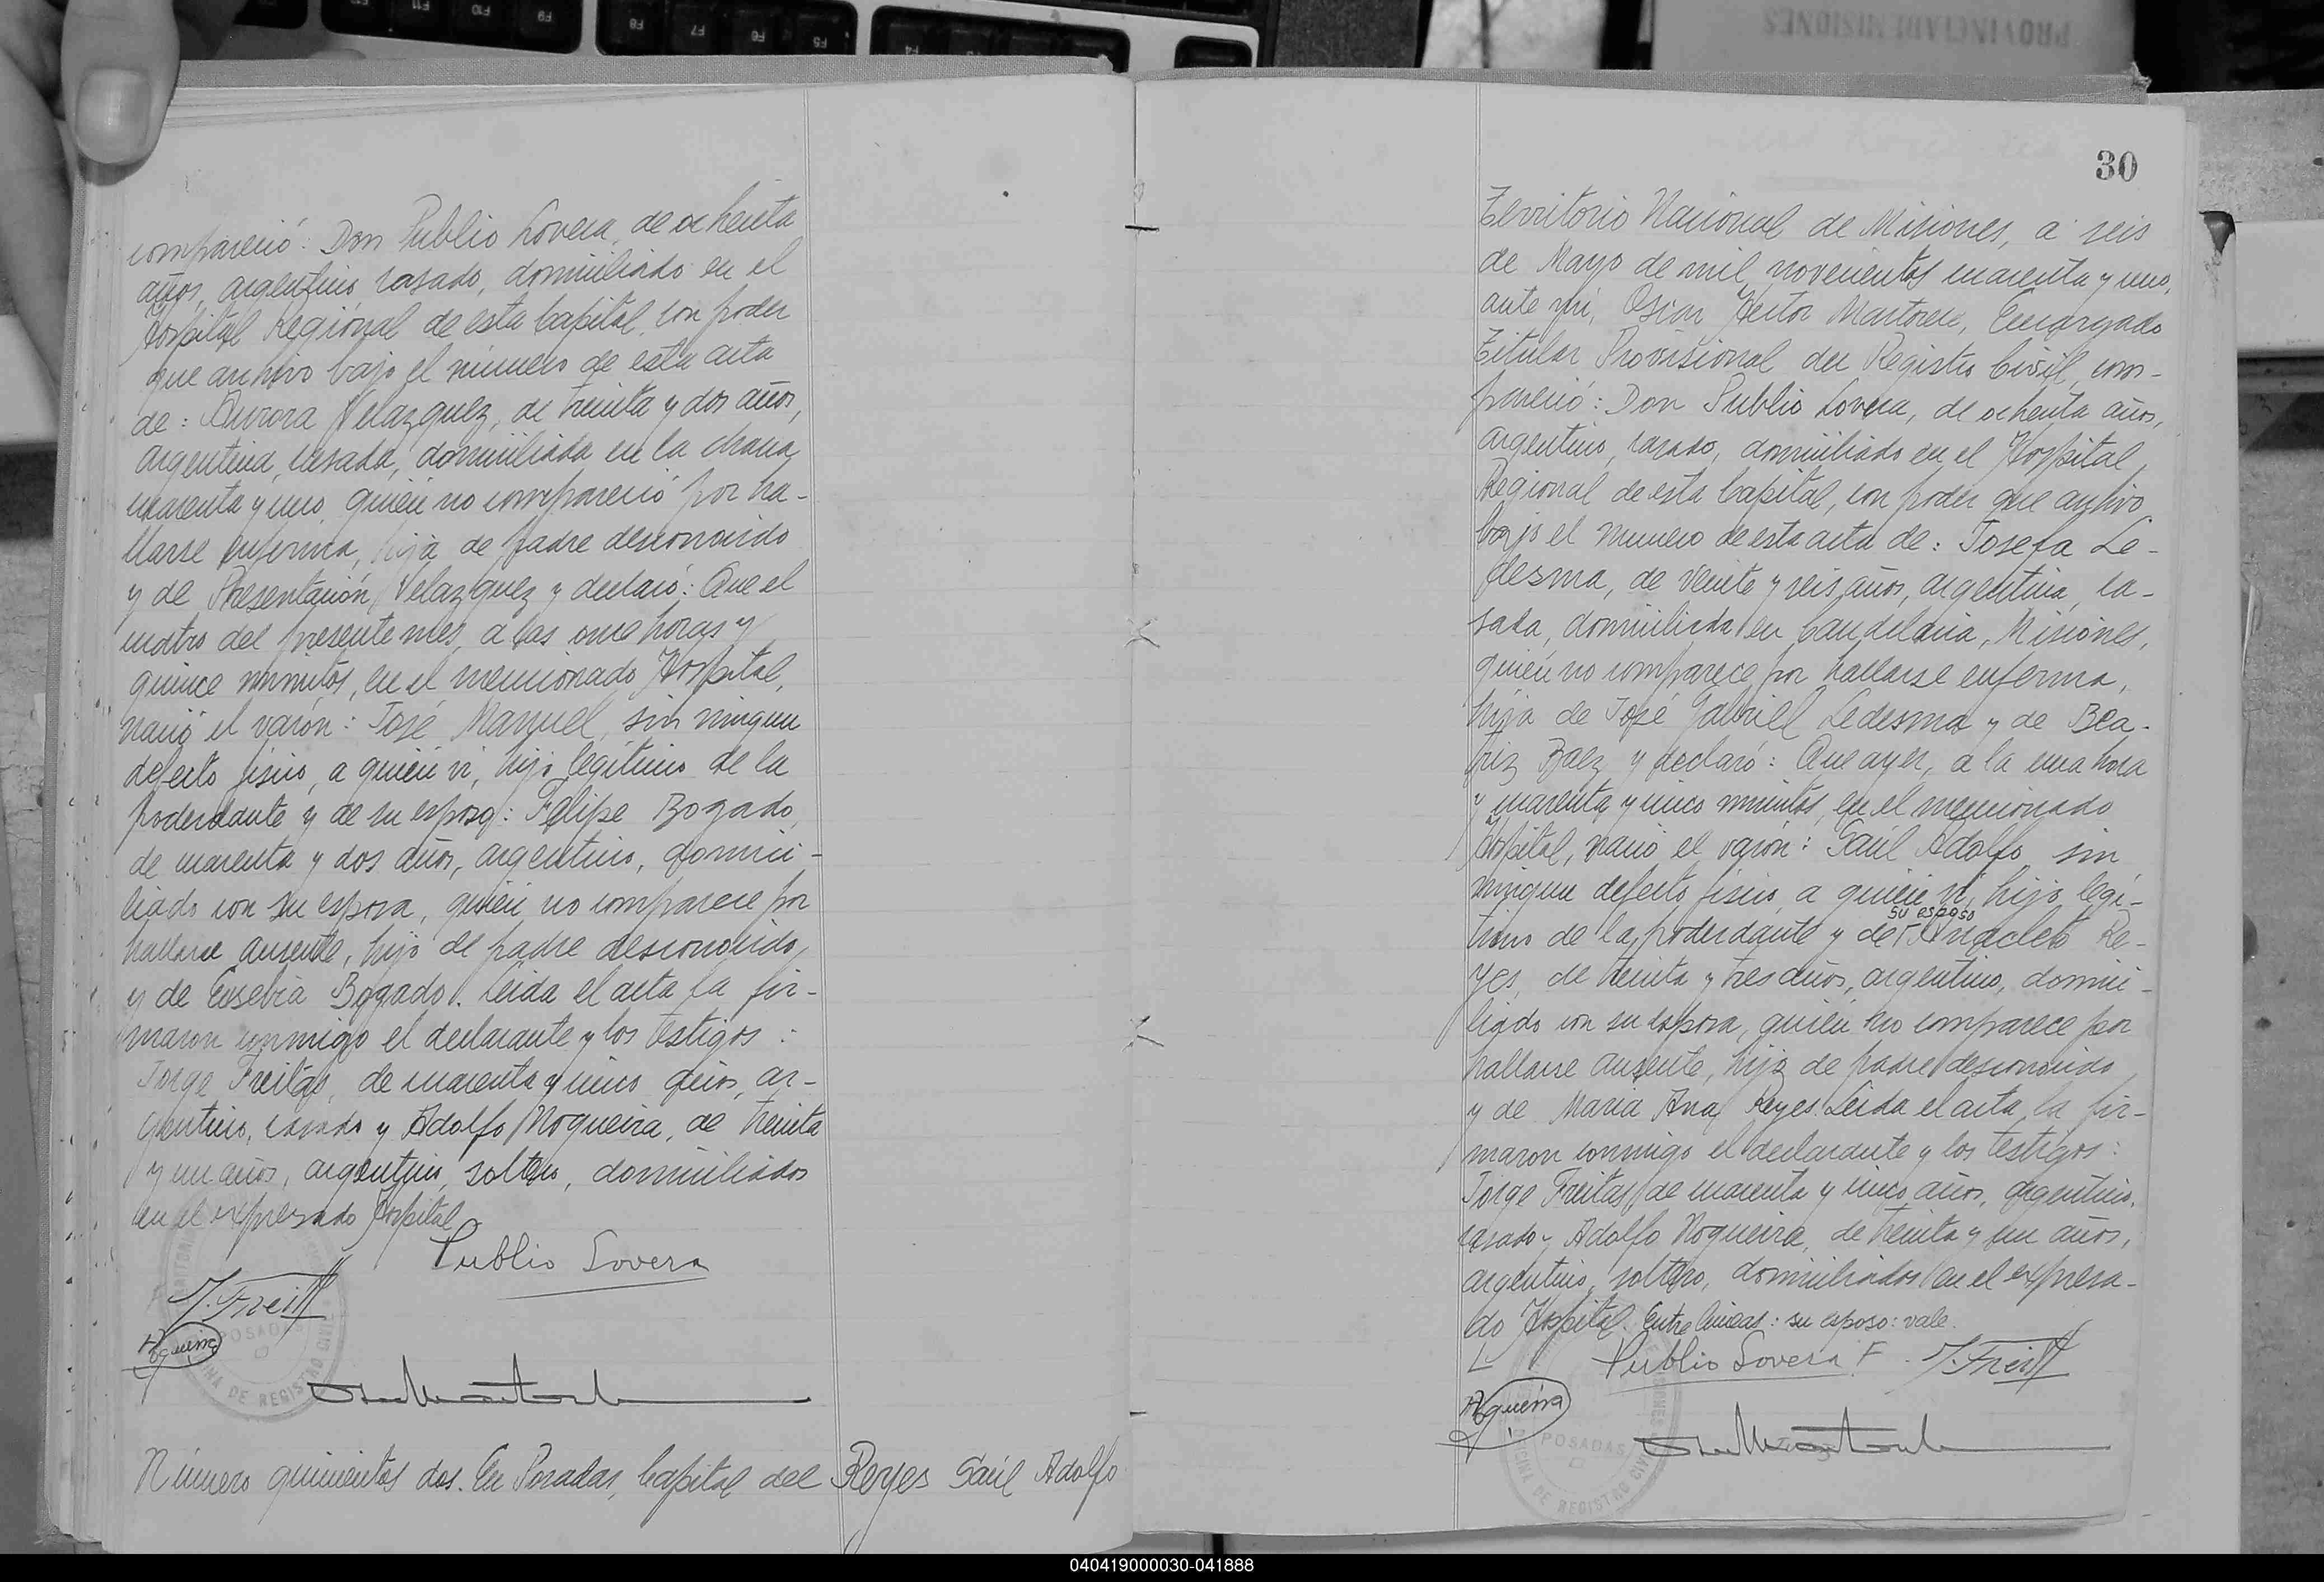 compareció: Don Publio Lovera, de ochenta
años, argentino, casado, domiciliado en el
Hospital Regional de esta Capital, con poder
que archivo bajo el número de esta acta
de: Aurora Velazquez, de treinta y dos años,
argentina, casada, domiciliada en la chacra
cuarenta y uno, quién no compareció por ha-
llarse enferma, hija de padre desconocido
y de Presentación Velazquez y declaró: Que el
cuatro del presente mes, a las once horas y
quince minutos, en el mencionado Hospital,
nació el varón: José Manuel, sin ningun
defecto físico, a quién vi, hijo legítimo de la
poderdante y de su esposo: Felipe Bogado,
de cuarenta y dos años, argentino, domici-
liado con su esposa, quién no comparece por
hallarse ausente, hijo de padre desconocido
y de Eusebia Bogado. Leída el acta la fir-
maron conmigo el declarante y los testigos:
Jorge Freitas, de cuarenta y cinco años, ar-
gentino, casado y Adolfo Noqueira, de treinta
y un años, argentino, soltero, domiciliados
en el expresado Hospital
Publio Lovera
J. Freitas
Noqueira
POSADAS
OFICINA DE REGISTRO CIVIL
Número quinientos dos. En Posadas, Capital del
Reyes Saúl Adolfo
30
Territorio Nacional de Misiones, a seis
de Mayo de mil novecientos cuarenta y uno,
ante mí, Oscar Hector Martorell, Encargado
Titular Provisional del Registro Civil, com-
pareció: Don Publio Lovera, de ochenta años,
argentino, casado, domiciliado en el Hospital
Regional de esta Capital, con poder que archivo
bajo el numero de esta acta de: Josefa Le-
desma, de veinte y seis años, argentina, ca-
sada, domiciliada en Candelaria, Misiones,
quién no comparece por hallarse enferma,
hija de José Gabriel Ledesma y de Bea-
triz Baez y declaró: Que ayer, a la una hora
y cuarenta y cinco minutos, en el mencionado
Hospital, nació el varón: Saúl Adolfo, sin
ningun defecto físico, a quién vi, hijo legí-
su esposo
timo de la poderdante y de Anacleto Re-
yes, de treinta y tres años, argentino, domici-
liado con su esposa, quién no comparece por
hallarse ausente, hijo de padre desconocido
y de Maria Ana Reyes. Leida el acta, la fir-
maron conmigo el declarante y los testigos:
Jorge Freitas, de cuarenta y cinco años, argentino,
casado y Adolfo Noqueira, de treinta y un años,
argentino, soltero, domiciliados en el expresa-
do Hospital. Entre lineas: su esposo: vale.
Publio Lovera F. J. Freitas
Noqueira
POSADAS
OFICINA DE REGISTRO CIVIL
PROVINCIA DE MISIONES
F11 F10 F9 F8 F7 F6 F5 F4
040419000030-041888